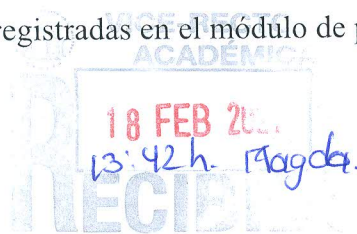 registradas en el módulo de p
VICE-RECTO
ACADÉMIC
18 FEB 20
13:42h. Magda.
RECIB